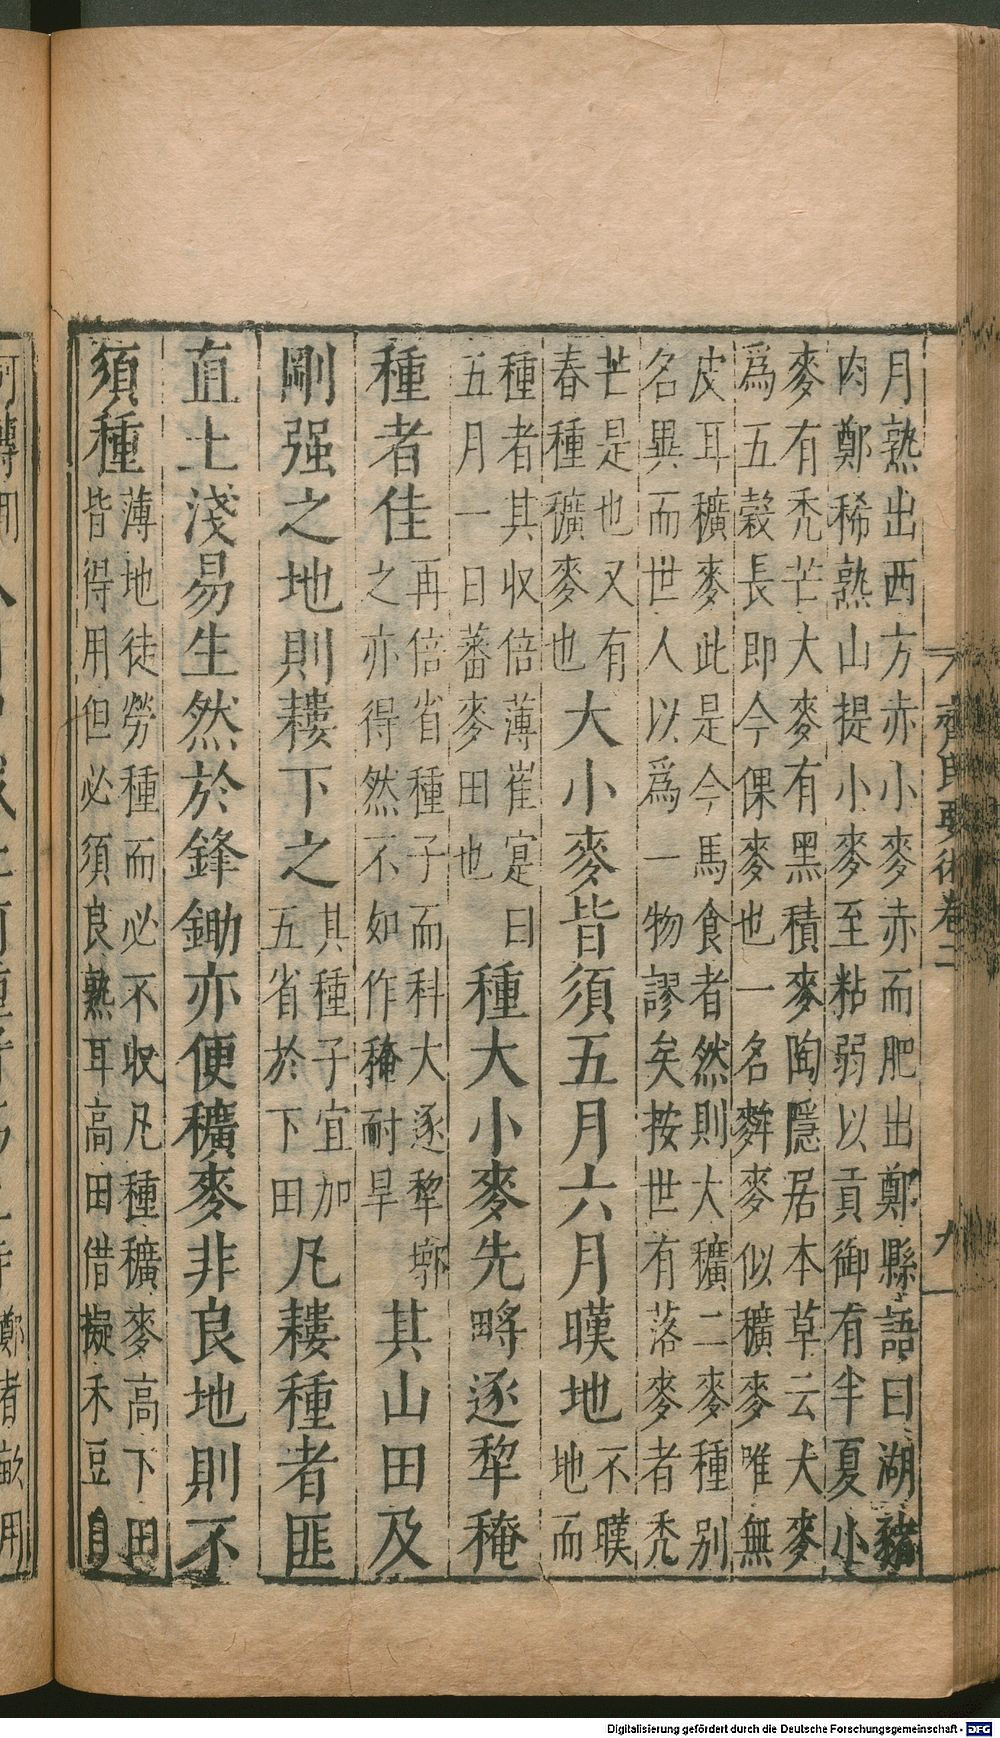 齊民要術卷二 九
月熟出西方赤小麥赤而肥出鄭縣語曰湖豬
肉鄭稀熟山提小麥至粘弱以貢御有半夏小
麥有禿芒大麥有黑積麥陶隱居本草云大麥
爲五穀長即今倮麥也一名麰麥似穬麥唯無
皮耳穬麥此是今馬食者然則大穬二麥種別
名異而世人以爲一物謬矣按世有落麥者禿
芒是也又有
春種穬麥也
大小麥皆須五月六月暵地
不暵
地而
種者其収倍薄崔寔曰
五月一日蕃麥田也
種大小麥先畤逐犂䅖
種者佳
再倍省種子而科大逐犂墎
之亦得然不如作䅖耐旱
其山田及
剛强之地則耬下之
其種子宜加
五省於下田
凡耬種者匪
直土淺易生然於鋒鋤亦便穬麥非良地則不
須種
薄地徒勞種而必不収凡種穬麥高下田
皆得用但必須良熟耳高田借擬禾豆自
Digitalisierung gefördert durch die Deutsche Forschungsgemeinschaft - DFG